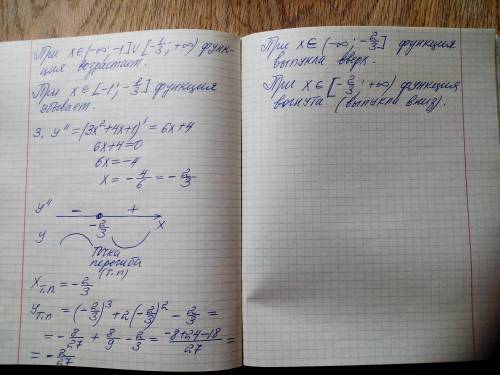 При x∈(-∞; -1]∪[-1/3; +∞) функ-
ция возрастает.
При x∈[-1; -2/3] функция
убывает.
3. y'' = (3x²+4x+1)' = 6x+4
6x+4=0
6x=-4
x = -4/6 = -2/3
y'' - + 
-2/3 x
y
Точка
перегиба
(т.п)
xт.п = -2/3
yт.п = (-2/3)³ + 2(-2/3)² - 2/3 =
= -8/27 + 8/9 - 2/3 = (-8+24-18)/27 =
= -2/27
При x∈(-∞; -2/3] функция
выпукла вверх.
При x∈[-2/3; +∞) функция
вогнута (выпукла вниз).